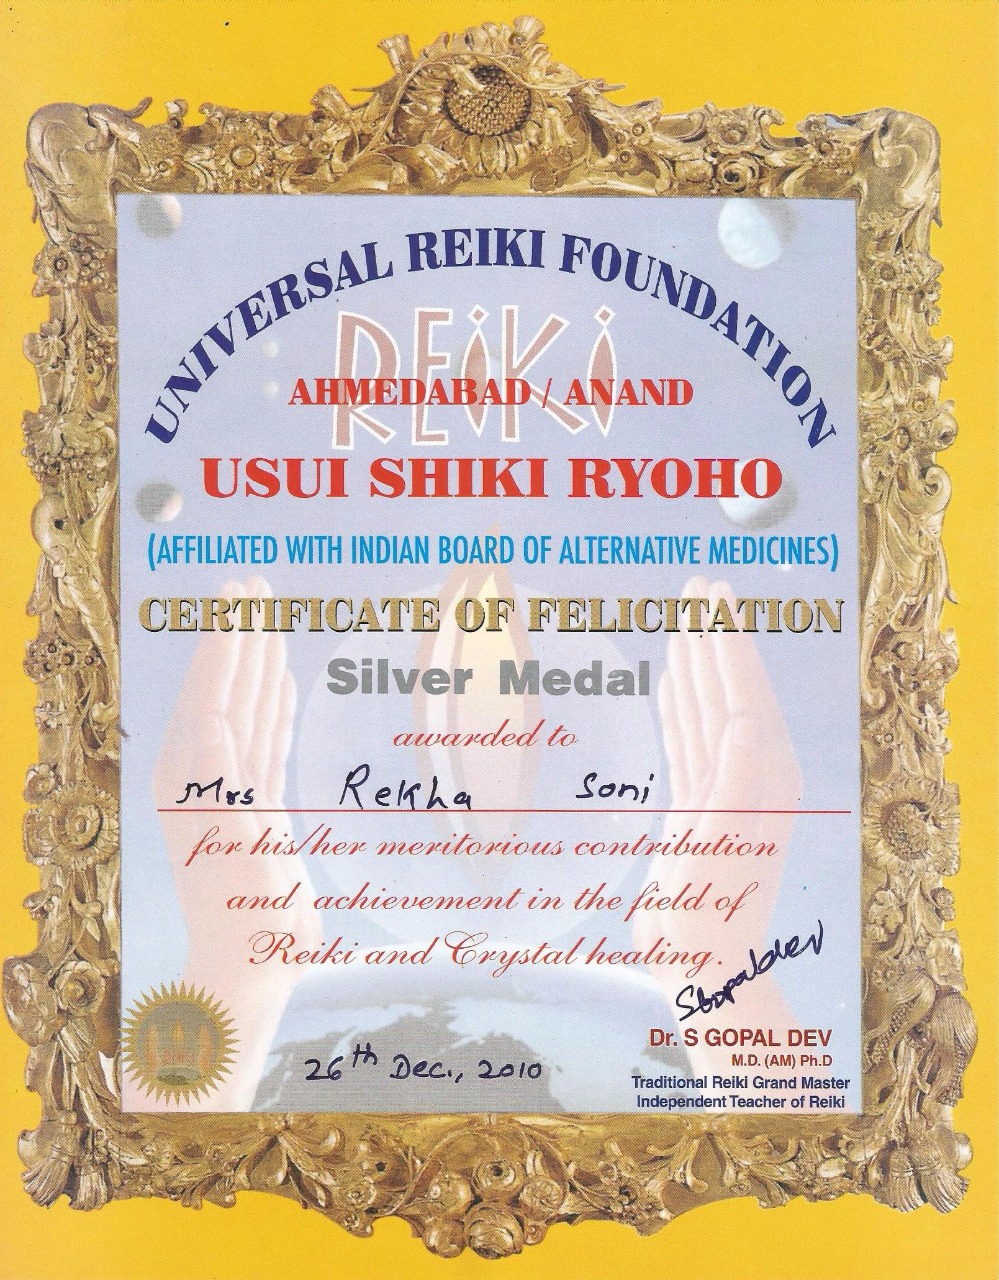 UNIVERSAL REIKI FOUNDATION
REiKi
AHMEDABAD / ANAND
USUI SHIKI RYOHO
(AFFILIATED WITH INDIAN BOARD OF ALTERNATIVE MEDICINES)
CERTIFICATE OF FELICITATION
Silver Medal
awarded to
Mrs Rekha Soni
for his/her meritorious contribution
and achievement in the field of
Reiki and Crystal healing.
Sgopaldev
Dr. S GOPAL DEV
M.D. (AM) Ph.D
26th Dec., 2010
Traditional Reiki Grand Master
Independent Teacher of Reiki